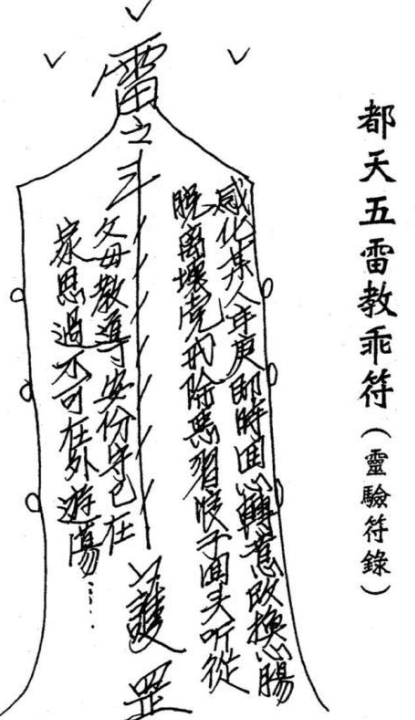 都天五雷教乖符(靈驗符錄)
雷
感化某人年庚即時回心轉意改換心腸
脫离壞党戒除惡習浪子回头听從
父母教導安份守己在
家思過不可在外遊蕩……
護
罡